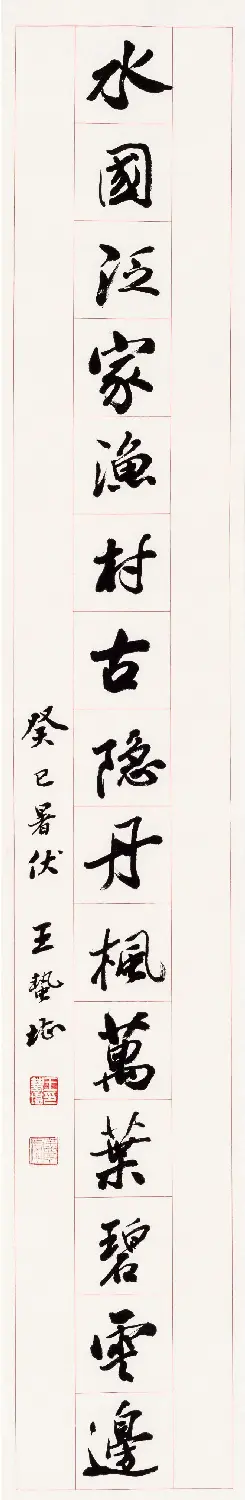 水國泛家漁村古隐丹楓萬葉碧雲邊
癸巳暑伏 王蟄堪